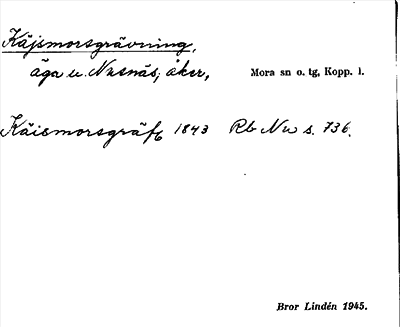 Käjsmorsgrävning,
äga u. Nusnäs, åker, Mora sn o. tg, Kopp. l.
Käismorsgräfv 1843 Rb Nu s. 736.
Bror Lindén 1945.